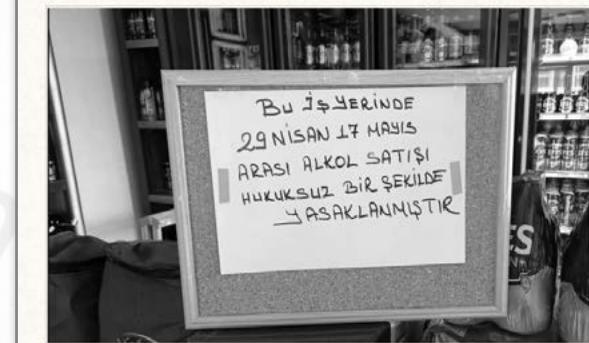 BU İŞ YERİNDE
29 NİSAN 17 MAYIS
ARASI ALKOL SATIŞI
HUKUKSUZ BİR ŞEKİLDE
YASAKLANMIŞTIR
ES